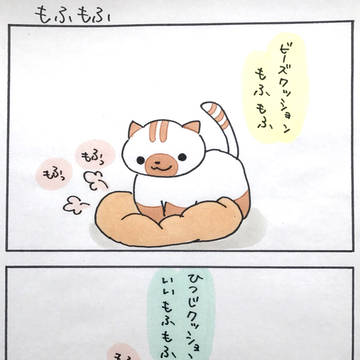 もふもふ
ビーズクッション
もふもふ
もふっ
もふっ
ひつじクッション
いいもふもふ